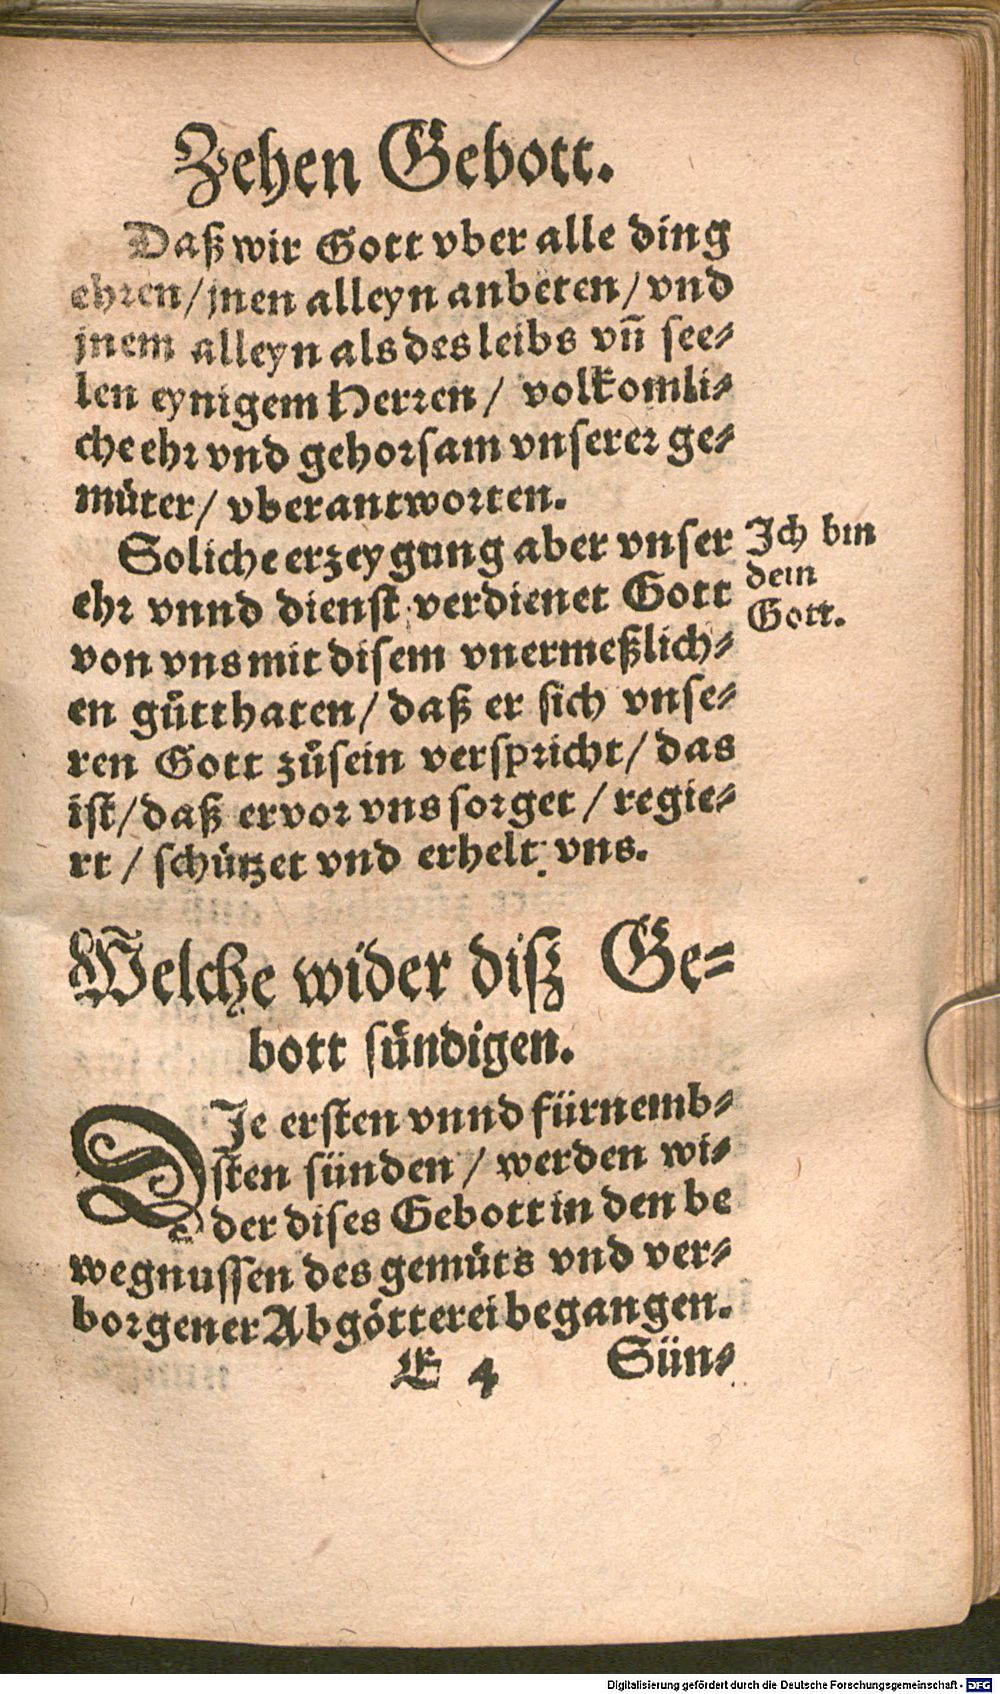 Zehen Gebott.
Daß wir Gott vber alle ding
ehren/jnen alleyn anbeten/vnd
jnem alleyn als des leibs vn̄ see⸗
len eynigem Herren/ volkomli⸗
che ehr vnd gehorsam vnserer ge⸗
muͤter/vberantworten.
Soliche erzeygung aber vnser
ehr vnnd dienst verdienet Gott
von vns mit disem vnermeßlich⸗
en guͤtthaten/daß er sich vnse⸗
ren Gott zuͤsein verspricht/das
ist/daß er vor vns sorget/regie⸗
rt/schützet vnd erhelt vns.
Ich bin
dein
Gott.
Welche wider diſz Ge⸗
bott sündigen.
DIe ersten vnnd fürnemb⸗
sten sünden/werden wi⸗
der dises Gebott in den be
wegnussen des gemuͤts vnd ver⸗
borgener Abgötterei begangen.
E 4 Sün⸗
Digitalisierung gefördert durch die Deutsche Forschungsgemeinschaft - DFG